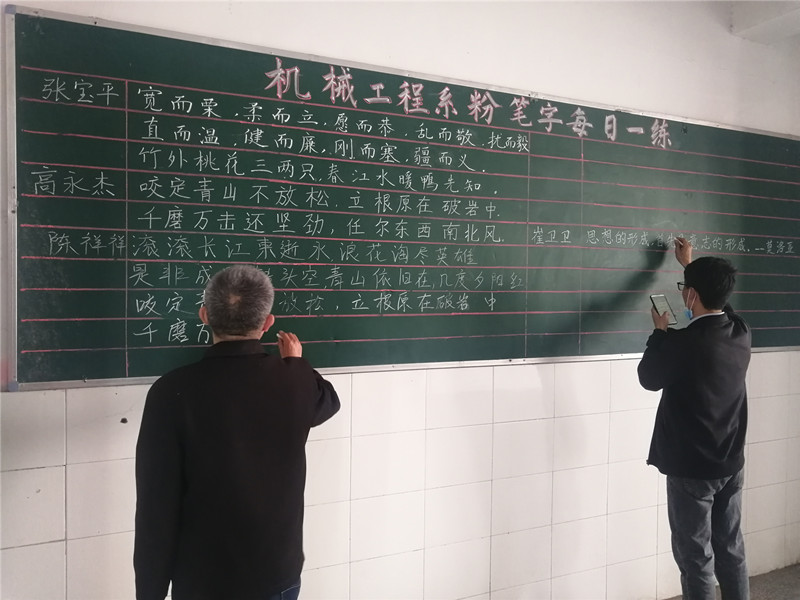 机械工程系粉笔字每日一练
张宝平 宽而栗,柔而立,愿而恭,乱而敬,扰而毅
直而温,健而廉,刚而塞,疆而义.
竹外桃花三两只,春江水暖鸭先知.
高永杰 咬定青山不放松,立根原在破岩中.
千磨万击还坚劲,任尔东西南北风.
陈祥祥 滚滚长江東逝水浪花淘尽英雄
是非成 头空青山依旧在,几度夕阳红
咬定 放松,立根原在破岩中
千磨万
崔卫卫 思想的形成,首先是意志的形成.——莫洛亚